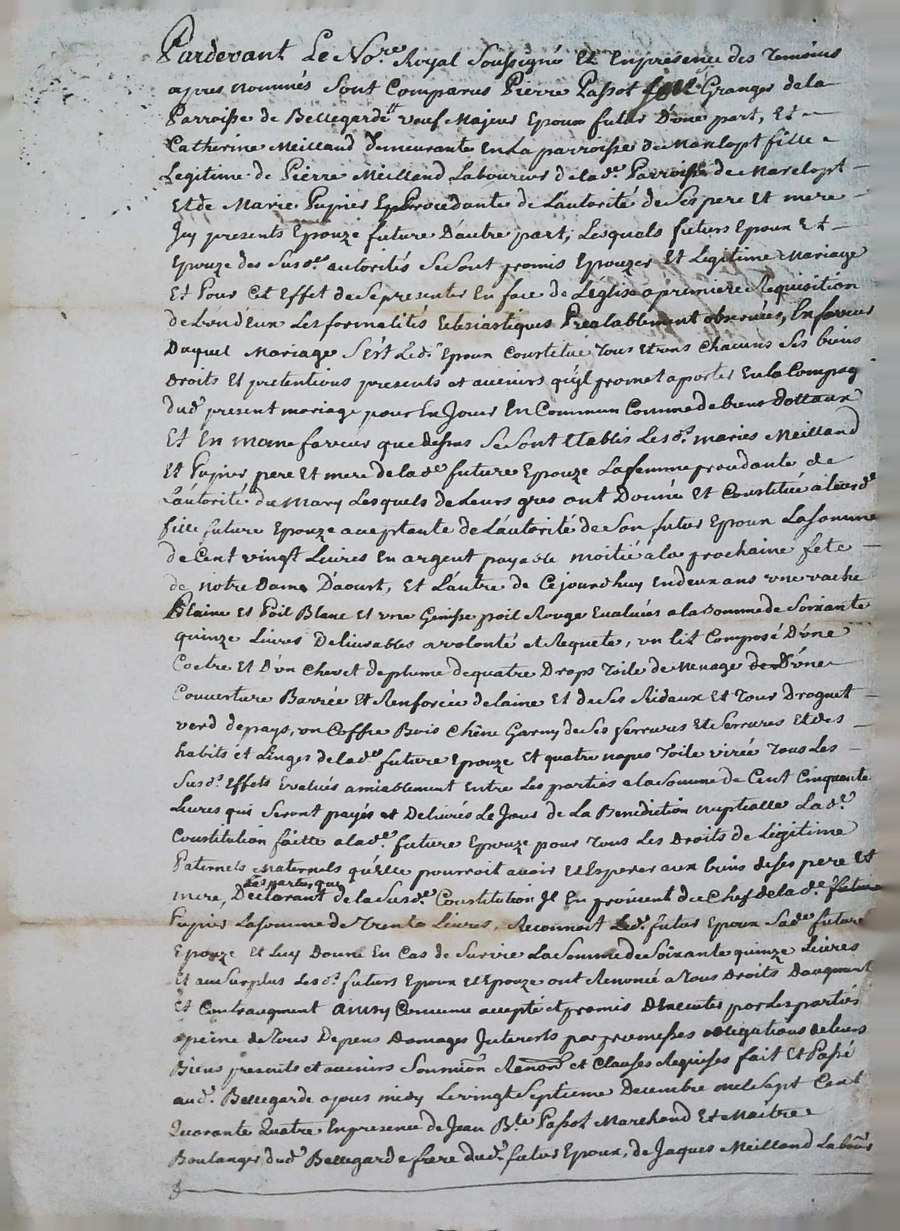 Pardevant Le No.re Royal Soussigné Et En presence des Temoins
apres nommés Sont Comparus Pierre Passot Granger dela
Parroisse de Bellegarde veuf Majeur Epoux futur D'une part, Et
Catherine Meilland demeurante En La parroisse de Marclopt fille
Legitime de Pierre Meilland Laboureur de lad.e Parroisse de Marclopt
Et de Marie Pupier Et Procedante de L'autorité de Ses pere Et mere
Icy presents Epouze future D'autre part, Lesquels futurs Epoux Et
Epouze des Susd.es autorités Se Sont promis Epouzer Et Legitime Mariage
Et Pour Cet Effet de Se presenter En face de L'eglise a premiere Requisition
de L'un deux Les formalités Eclesiastiques Prealablement observées, En faveur
Duquel Mariage S'est Led.t Epoux Constitué Tous Et uns Chacuns Ses biens
Droits Et pretentions presents et avenirs qu'il promet aporter En la Compag
dud.t present mariage pour En Jouir En Commun Comme de biens dottaux
Et En meme faveur que dessus Se Sont Etablis Lesd.ts maries Meilland
Et Pupier pere Et mere de lad.e future Epouze La femme procedante de
L'autorité du Mary Lesquels de Leurs gres ont Donné Et Constitué a leurd.e
fille future Epouze aceptante de L'autorité de Son futur Epoux La Somme
de Cent vingt Livres En argent payable moitié a la prochaine fete
de Notre Dame D'aoust, Et L'autre de Ce jourd'huy En deux ans une vache
Plaine Et Poil Blanc Et une Genisse poil Rouge Evaluées a la Somme de Soixante
quinze Livres Delivrables a volonté et Requete, un Lit Composé D'une
Coetre Et D'un Chevet de plume de quatre Draps Toile de menage de D'une
Couverture Barrée Et Renforcée de laine Et de Ses Ridaux Et Tour Droguet
verd de pays, un Coffre Bois Chêne Garny de Ses ferrures Et Serrures Et des
habits et Linges de lad.e future Epouze Et quatre napes Toile virée Tous Les
Susd.ts Effets Evalués amiablement Entre Les parties a la Somme de Cent Cinquante
Livres qui Seront payés et Delivrés Le Jour de La Benediction nuptialle Lad.e
Constitution faitte a lad.e future Epouze pour Tous Les Droits de Légitime
Paternels Maternels qu'elle pourroit avoir Et Esperer aux biens de Ses pere Et
Les parties que
mere, Declarant de la Susd.e Constitution Il En provient du Chef de lad.e
Pupier La Somme de Trente Livres, Reconnoit Led.t futur Epoux Sad.e future
Epouze Et Luy Donne En Cas de Survie La Somme de Soixante quinze Livres
Et au Surplus Lesd.ts futurs Epoux Et Epouze ont Renoncé a Tous Droits D'augment
Et Contraugment ainsy Convenu accepté et promis D'executer par Les parties
a peine de Tous Depens Domages Interests par promesses obligations de leurs
Biens presents et avenirs Soumiōn Renonōn et Clauses Requises fait Et Passé
aud.t Bellegarde apres midy Le vingt Septieme Decembre mil Sept Cent
Quarante Quatre En presence de Jean B.te Passot Marchand Et Maitre
Boulanger dud.t Bellegarde frere dud.t futur Epoux, de Jaques Meilland